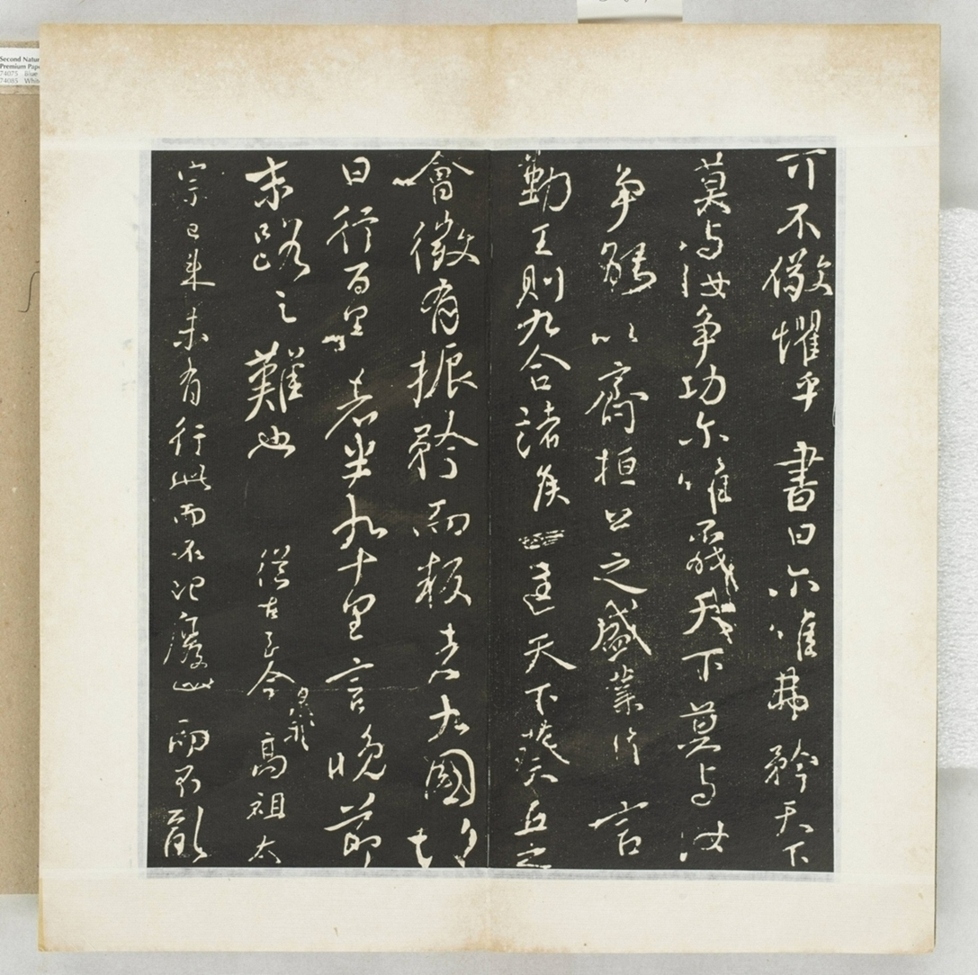 可不儆懼乎書曰尔唯弗矜天下
莫与汝争功尔唯不伐天下莫与汝
争能以齊桓公之盛業片言
勤王則九合諸侯一匡天下葵丘之
會微有振矜而叛者九國故
曰行百里者半九十里言晚節
末路之難也從古至今洎我高祖太
宗已来未有行此而不理廢此而不亂
Second Natur
Premium Pap
74075 Blue
74085 Whit